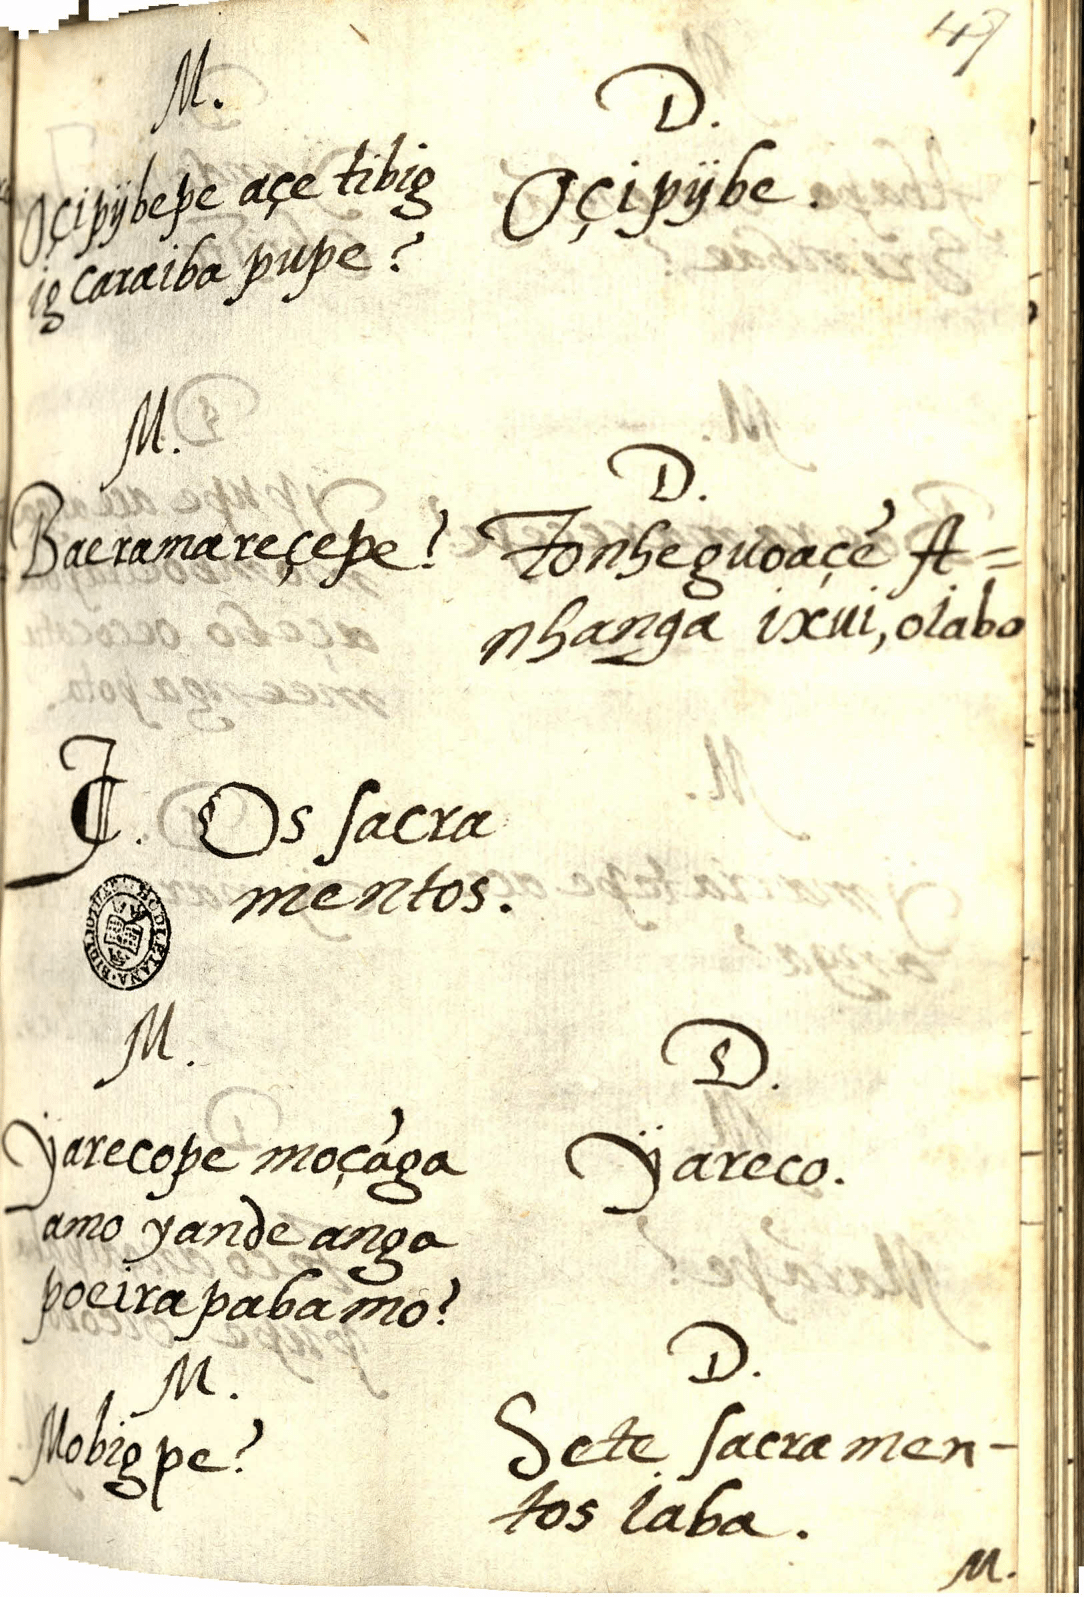 47
M.
Oçipÿbepe açe tibig
ig caraiba pupe?
D.
Oçipÿbe.
M.
Baeramareçepe?
D.
Tonheguoaçé A=
nhanga ixui, olabo
Os sacra
mentos.
M.
Ÿarecope moçága
amo yande anga
poeirapabamo?
D.
Ÿareco.
M.
Mobigpe?
D.
Sete sacramen-
tos iaba.
M.